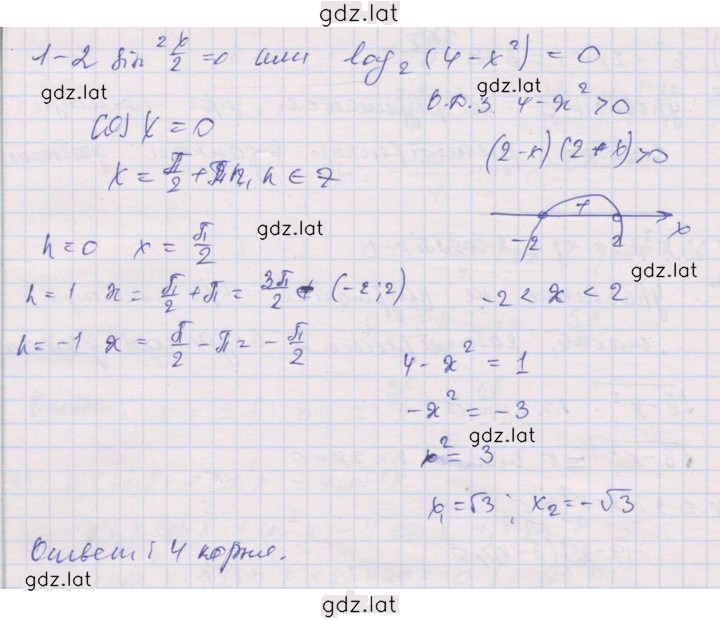 gdz.lat
1-2 sin² x/2 = 0 или log₂(4-x²) = 0
gdz.lat
gdz.lat
О.Д.З. 4-x²>0
cos x = 0
(2-x)(2+x)>0
x = π/2 + πn, n ∈ Z
+
-2 2 x
gdz.lat
n=0 x = π/2
gdz.lat
n=1 x = π/2 + π = 3π/2 ∉ (-2;2)
-2 < x < 2
n=-1 x = π/2 - π = -π/2
4-x² = 1
-x² = -3
gdz.lat
x² = 3
x₁=√3; x₂=-√3
gdz.lat
Ответ: 4 корня.
gdz.lat
gdz.lat